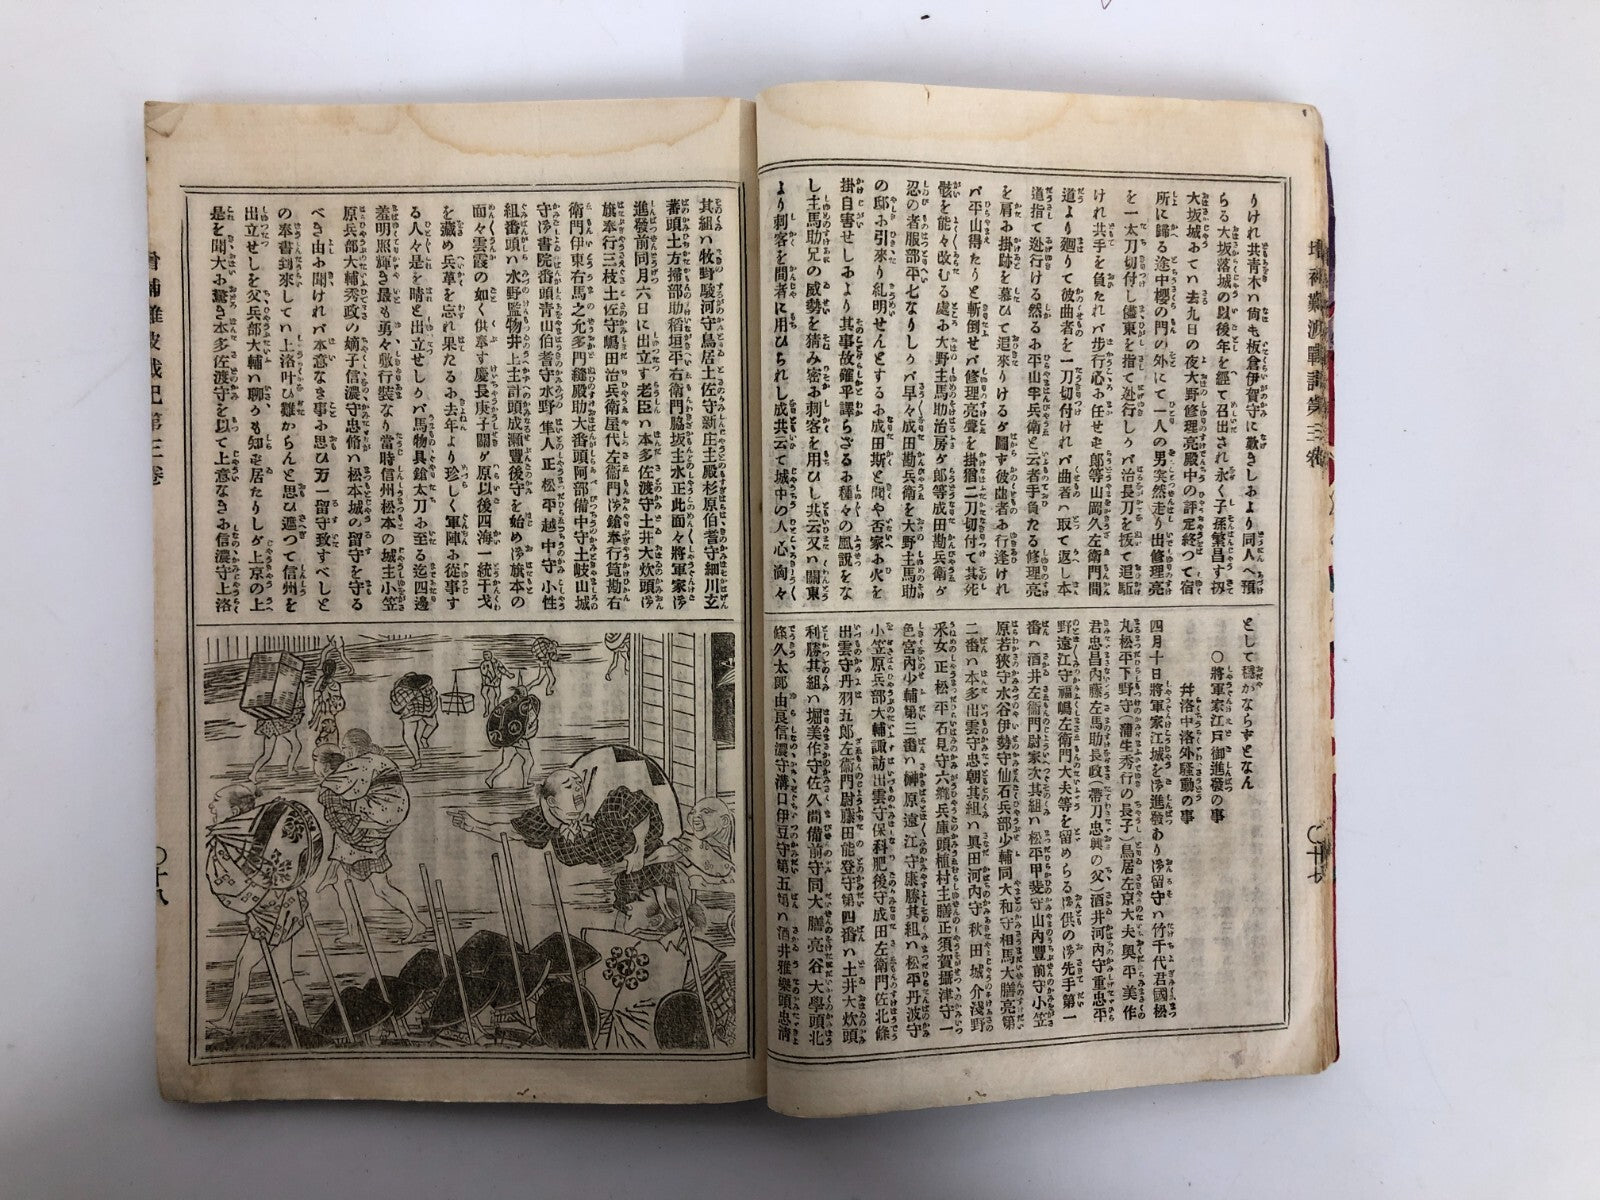 りけれ共青木ハ尚も板倉伊賀守に歎きしかより同人へ預
らる大坂落城の以後年を經て召出され永く子孫繁昌す扨
大坂城おいてハ去九日の夜大野修理亮殿中の評定終つて宿
所に歸る途中櫻の門の外にて一人の男突然走り出修理亮
を一太刀切付し儘東を指て迯行しゥバ治長刀を拔て追駈
けれ共手を負たれバ歩行心お任せ郎等山岡久左衛門間
道より廻りて彼曲者を一刀切付けれバ曲者ハ取て返し本
道指て迯行ける然るお平山半兵衛と云者手負たる修理亮
を肩お掛跡を慕ひて追來りけるゲ鬪す彼曲者お行逢けれ
バ平山得たりと斬倒せバ修理亮聲を掛猶二刀切付て其死
骸を能々改むる處お大野主馬助治房ゲ郎等成田勘兵衛ゲ
忍の者服部平七なりしゥバ早々成田勘兵衛を大野主馬助
の邸お引來り糺明せんとするお成田斯と聞や否家お火を
掛自害せしおより其事故確乎譯らざるお種々の風説をな
し主馬助兄の威勢を猜み密お刺客を用ひし共云又ハ關東
より刺客を間者に用ひられし成共云て城中の人心洶々
として穩かならずとなん
〇將軍家江戸御進發の事
幷洛中洛外騷動の事
四月十日將軍家江城を御進發あり御留守ハ竹千代君國松
丸松平下野守(蒲生秀行の長子)鳥居左京大夫奥平美作
君忠昌內藤左馬助長政(帶刀忠興の父)酒井河內守重忠平
野遠江守福嶋左衛門大夫等を留めらる御供の御先手第一
番ハ酒井左衛門尉家次其組ハ松平甲斐守山內豐前守小笠
原若狹守水谷伊勢守仙石兵部少輔同大和守相馬大膳亮第
二番ハ本多出雲守忠朝其組ハ眞田河內守秋田城介淺野
采女正松平石見守六鄕兵庫頭植村主膳正須賀攝津守一
色宮內少輔第三番ハ榊原遠江守康勝其組ハ松平丹波守
小笠原兵部大輔諏訪出雲守保科肥後守成田左衛門佐北條
出雲守丹羽五郎左衛門尉藤田能登守第四番ハ土井大炊頭
利勝其組ハ堀美作守佐久間備前守同大膳亮谷大學頭北
條久太郎由良信濃守溝口伊豆守第五番ハ酒井雅樂頭忠淸
其組ハ牧野駿河守鳥居土佐守新庄主殿杉原伯耆守細川玄
蕃頭土方掃部助稻垣平右衛門脇坂主水正此面々將軍家御
進發前同月六日に出立す老臣ハ本多佐渡守土井大炊頭御
旗奉行三枝土佐守嶋田治兵衛屋代左衛門御鎗奉行筧勘右
衛門伊東右馬之允多門縫殿助大番頭阿部備中守土岐山城
守御書院番頭靑山伯耆守水野隼人正松平越中守小性
組番頭ハ水野監物井上主計頭成瀨豐後守を始め御旗本の
面々雲霞の如く供奉す慶長庚子關ゲ原以後四海一統干戈
を藏め兵革を忘れ果たるお去年より珍しく軍陣お從事す
る人々是を晴と出立せしゥバ馬物具鎗太刀お至る迄四邊
羞明照輝き最も勇々敷行裝なり當時信州松本の城主小笠
原兵部大輔秀政の嫡子信濃守忠脩ハ松本城の留守を守る
べき由お聞けれバ本意なき事お思ひ万一留守致すべしと
の奉書到來してハ上洛叶ひ難からんと思ひ遮つて信州を
出立せしを父兵部大輔ハ聊ゥも知ず居たりしゲ上京の上
是を聞大お驚き本多佐渡守を以て上意なきお信濃守上洛
增補難波戰記第三卷
〇十八